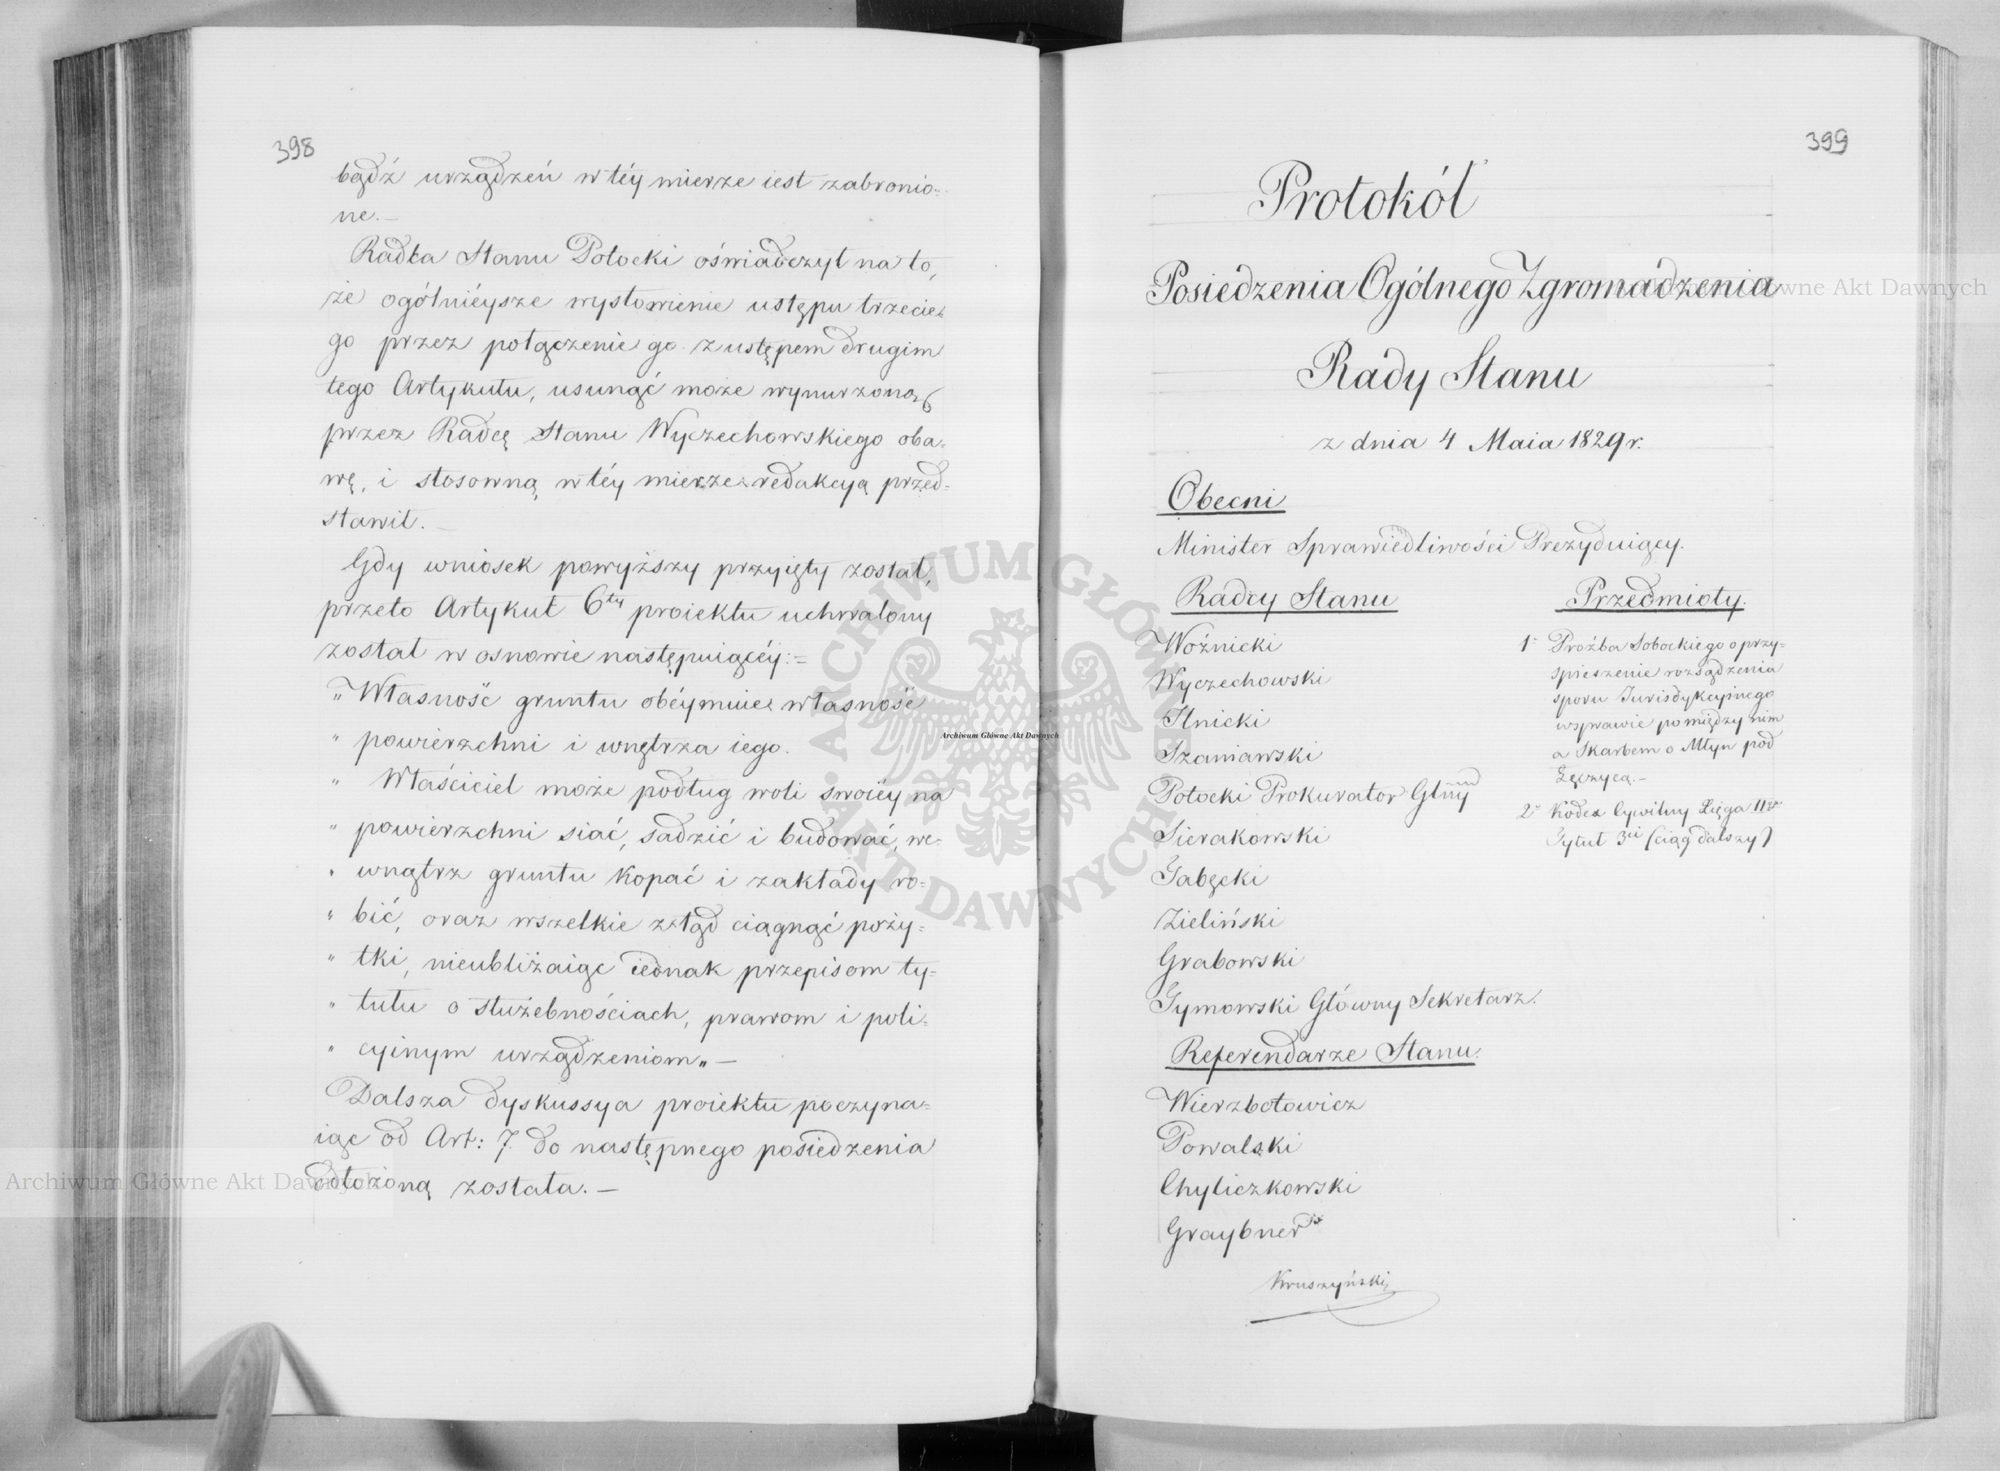 398
bądź urządzeń w téy mierze iest zabronio=
ne.—
Radca Stanu Potocki oświadczył na to,
że ogólnieysze wysłowienie ustępu trzecie=
go przez połączenie go z ustępem drugim
tego Artykułu, usunąć może wynurzoną
przez Radcę Stanu Wyczechowskiego oba=
wę, i stosowną w téy mierze redakcyą przed=
stawił.—
Gdy wniosek powyższy przyięty został,
przeto Artykuł 6ty proiektu uchwalony
został w osnowie następuiącéy:=
„Własność gruntu obéymuie własność
" powierzchni i wnętrza iego.
" Właściciel może podług woli swoiéy na
" powierzchni siać, sadzić i budować, we=
" wnątrz gruntu kopać i zakłady ro=
" bić, oraz wszelkie ztąd ciągnąć poży=
" tki, nieubliżaiąc iednak przepisom ty=
" tułu o służebnościach, prawom i poli=
" cyinym urządzeniom„—
Dalsza dyskussya proiektu poczyna=
iąc od Art: 7. do następnego posiedzenia
odłożoną została.—
399
Protokół
Posiedzenia Ogólnego Zgromadzenia
Rady Stanu
z dnia 4 Maia 1829 r.
Obecni
Minister Sprawiedliwości Prezyduiący.
Radcy Stanu
Woźnicki
Wyczechowski
Ilnicki
Szaniawski
Potocki Prokurator Glny
Sierakowski
Tabęcki
Zieliński
Grabowski
Tymowski Główny Sekretarz.
Referendarze Stanu.
Wierzbołowicz
Powalski
Chyliczkowski
Graybner
Kruszyński
Przedmioty.
1= Proźba Sobockiego o przy=
spieszenie rozsądzenia
sporu Jurisdykcyinego
w sprawie pomiędzy nim
a Skarbem o Młyn pod
Łęczycą.—
2= Kodex Cywilny Xięga IIga
Tytuł 3ci (ciąg dalszy)
Archiwum Główne Akt Dawnych
ARCHIWUM GŁÓWNE AKT DAWNYCH
Archiwum Główne Akt Dawnych
Archiwum Główne Akt Dawnych